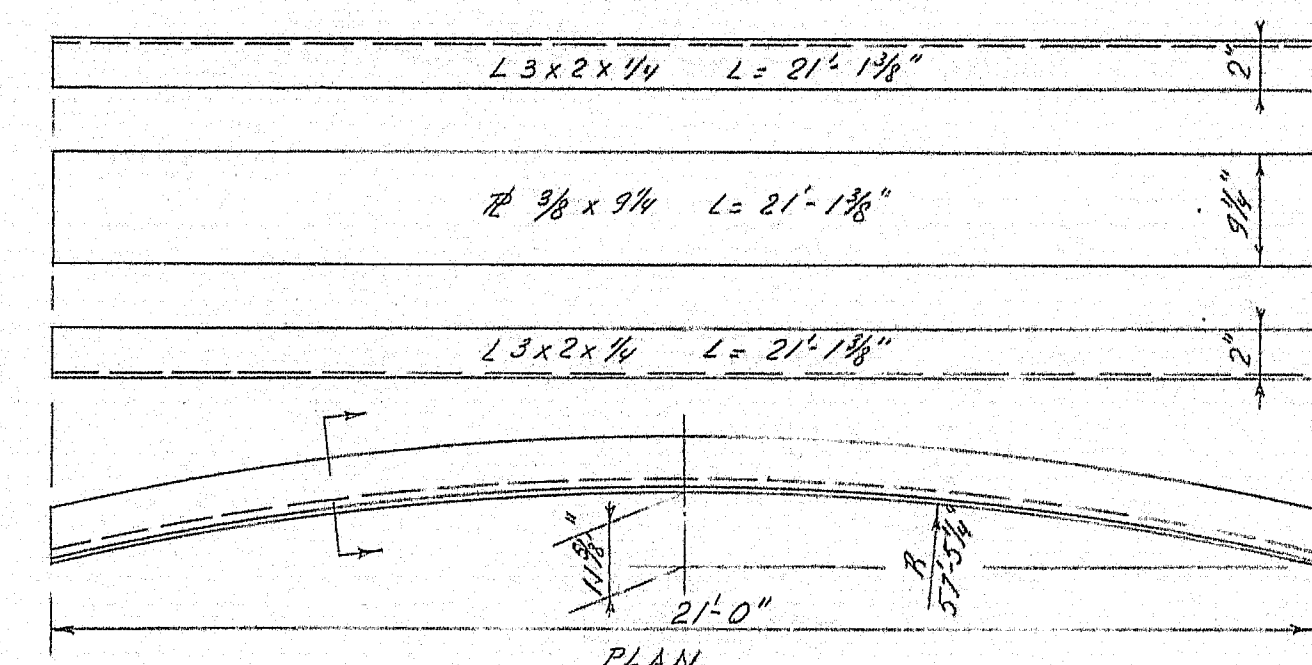 L 3 x 2 x 1/4 L = 21'- 1 3/8"
2"
PL 3/8 x 9 1/4 L = 21'- 1 3/8"
9 1/4"
L 3 x 2 x 1/4 L = 21'- 1 3/8"
2"
11 5/8"
R
57'-5 1/4"
21'-0"
PLAN